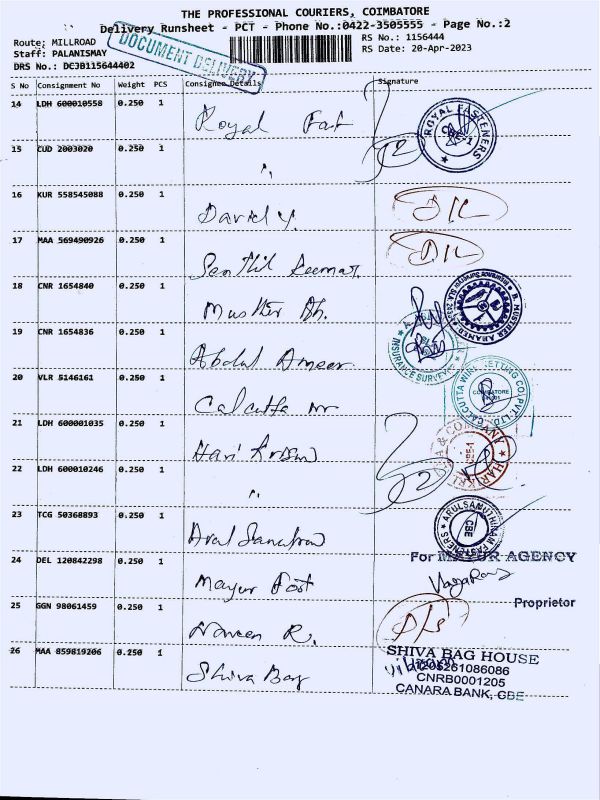 THE PROFESSIONAL COURIERS, COIMBATORE
Delivery Runsheet - PCT - Phone No.:0422-3505555 - Page No.:2
Route: MILLROAD
RS No.: 1156444
Staff: PALANISMAY
RS Date: 20-Apr-2023
DRS No.: DCJB115644402
DOCUMENT DELIVERY
S No Consignment No Weight PCS Consignee Details Signature
14 LDH 600010558 0.250 1 Royal Fast
ROYAL FASTENERS
15 CUD 2003020 0.250 1 "
16 KUR 558545088 0.250 1 David Y.
17 MAA 569490926 0.250 1 Senthil Kumar.
18 CNR 1654840 0.250 1
19 CNR 1654836 0.250 1 Abdul Ameer
INSURANCE SURVEYOR
20 VLR 5146161 0.250 1 Calcutta
21 LDH 600001035 0.250 1 Hari Krisn
22 LDH 600010246 0.250 1 "
23 TCG 50368893 0.250 1
ARULSAMUTHIRAM FASTENERS
CBE
24 DEL 120842298 0.250 1 Mayur Foot
For MAYUR AGENCY
Proprietor
25 GGN 98061459 0.250 1 Naveen R.
26 MAA 859819206 0.250 1 Shiva Bag
SHIVA BAG HOUSE
1205261086086
CNRB0001205
CANARA BANK, CBE